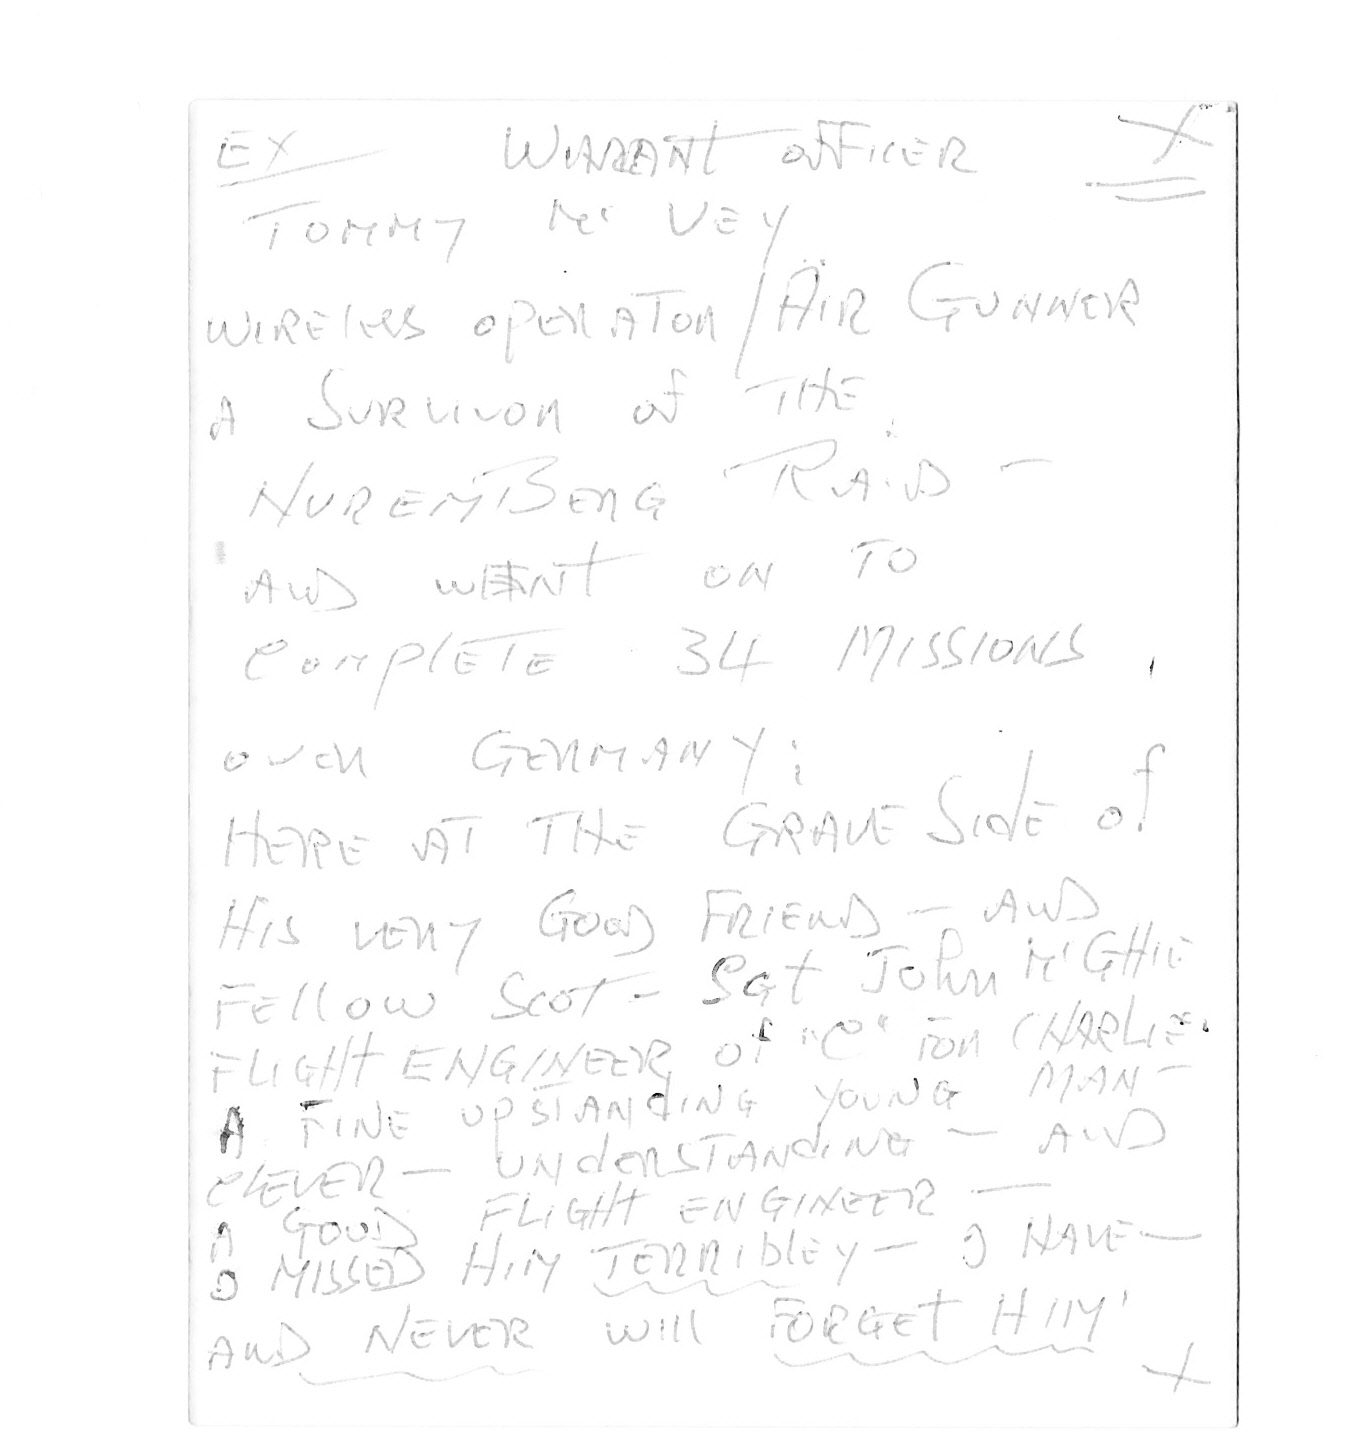 EX WARRANT OFFICER X
TOMMY Mc VEY
WIRELESS OPERATOR / AIR GUNNER
A SURVIVOR OF THE
NUREMBERG RAID -
AND WENT ON TO
COMPLETE 34 MISSIONS
OVER GERMANY;
HERE AT THE GRAVE SIDE OF
HIS VERY GOOD FRIEND - AND
FELLOW SCOT - SGT JOHN Mc GHIE
FLIGHT ENGINEER OF "C" FOR CHARLIE.
A FINE UPSTANDING YOUNG MAN -
CLEVER - UNDERSTANDING - AND
A GOOD FLIGHT ENGINEER -
I MISSED HIM TERRIBLEY - I HAVE -
AND NEVER WILL FORGET HIM'
X